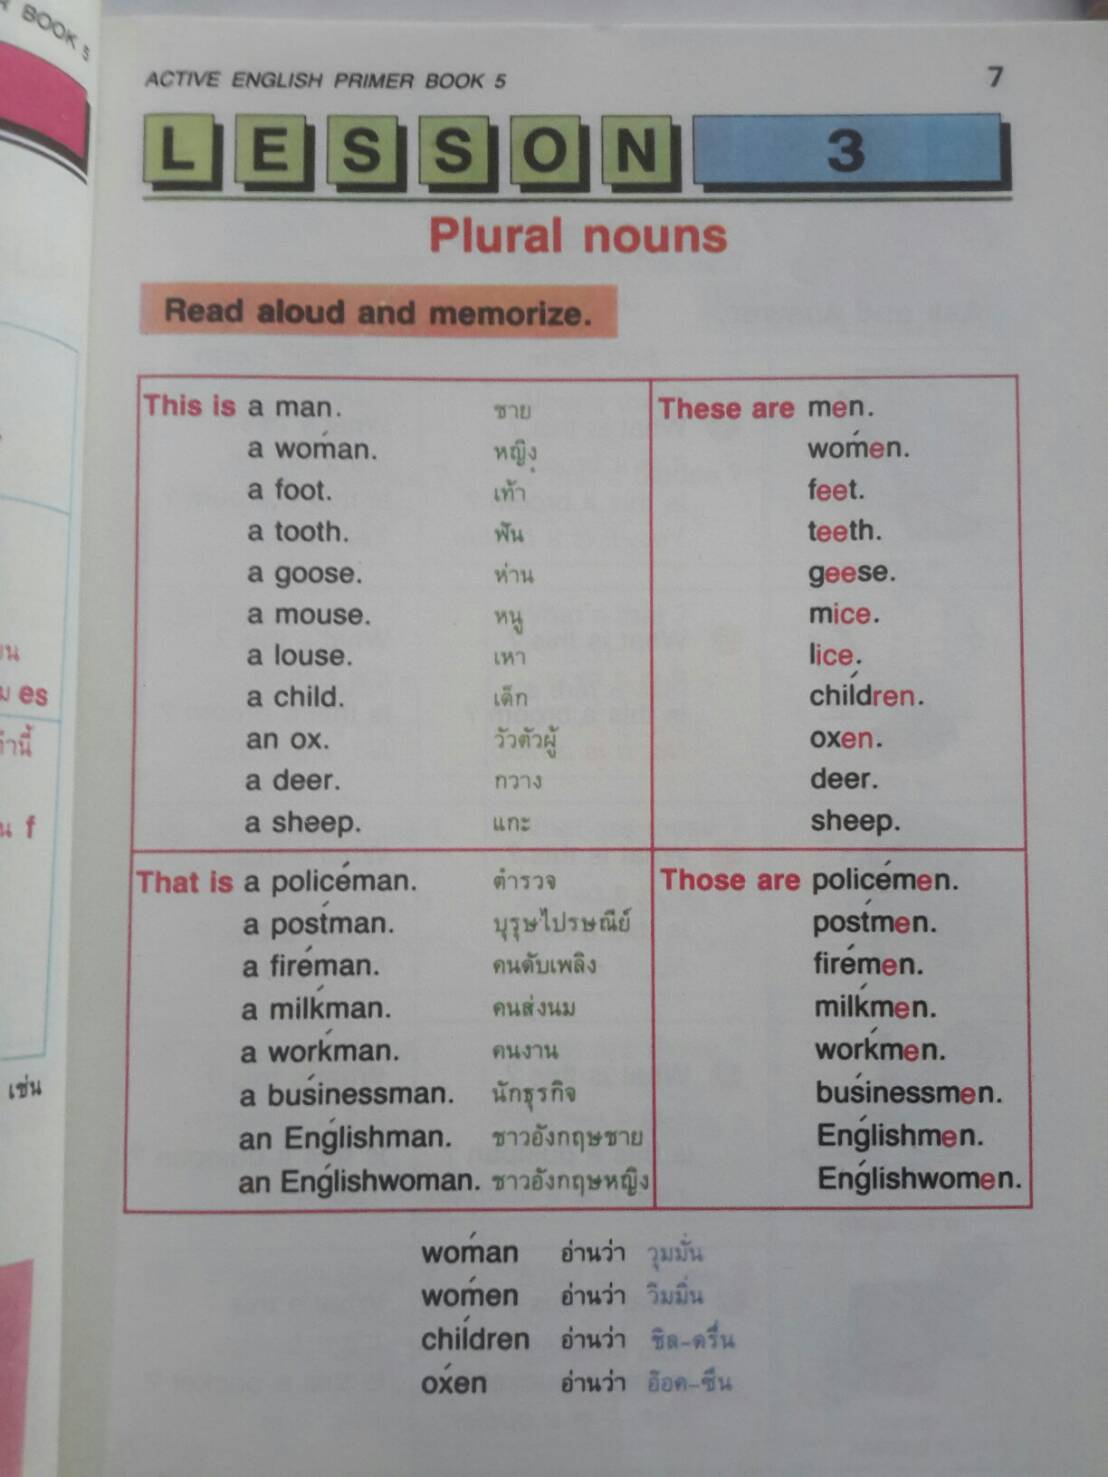 R BOOK 5
ยน
ม es
คำนี้
น f
เช่น
ACTIVE ENGLISH PRIMER BOOK 5 7
LESSON 3
Plural nouns
Read aloud and memorize.
This is a man. ชาย These are men.
a woman. หญิง women.
a foot. เท้า feet.
a tooth. ฟัน teeth.
a goose. ห่าน geese.
a mouse. หนู mice.
a louse. เหา lice.
a child. เด็ก children.
an ox. วัวตัวผู้ oxen.
a deer. กวาง deer.
a sheep. แกะ sheep.
That is a policeman. ตำรวจ Those are policemen.
a postman. บุรุษไปรษณีย์ postmen.
a fireman. คนดับเพลิง firemen.
a milkman. คนส่งนม milkmen.
a workman. คนงาน workmen.
a businessman. นักธุรกิจ businessmen.
an Englishman. ชาวอังกฤษชาย Englishmen.
an Englishwoman. ชาวอังกฤษหญิง Englishwomen.
woman อ่านว่า วุมมั่น
women อ่านว่า วิมมิ่น
children อ่านว่า ชิล-ดรึ่น
oxen อ่านว่า อ๊อค-ซึ่น